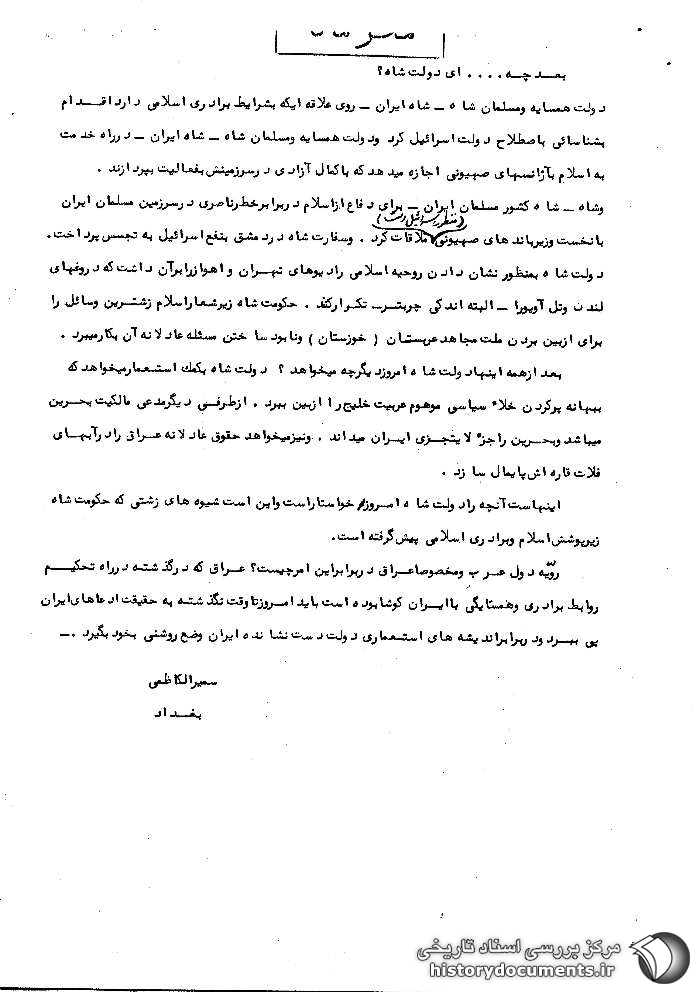 بعد چه .... ای دولت شاه؟
دولت همسایه ومسلمان شاه ــ شاه ایران ــ روی علاقه ایکه بشرایط برادری اسلامی دارد اقدام
بشناسائی باصطلاح دولت اسرائیل کرد ودولت همسایه ومسلمان شاه ــ شاه ایران ــ درراه خدمت
به اسلام بآژانسهای صهیونی اجازه میدهد که باکمال آزادی درسرزمینش بفعالیت بپردازند .
وشاه ــ شاه کشور مسلمان ایران ــ برای دفاع ازاسلام دربرابرخطرناصری درسرزمین مسلمان ایران
بانخست وزیرباندهای صهیونی ملاقات کرد . وسفارت شاه دردمشق بنفع اسرائیل به تجسس پرداخت .
دولت شاه بمنظور نشان دادن روحیه اسلامی رادیوهای تهران و اهوازرابرآن داشت که دروغهای
لندن وتل آویورا ــ البته اندکی چربتر ــ تکرارکند . حکومت شاه زیرشعاراسلام زشتترین وسائل را
برای ازبین بردن ملت مجاهد عربستان ( خوزستان ) ونابود ساختن مسئله عادلانه آن بکارمیبرد .
بعد ازهمه اینهادولت شاه امروزدیگرچه میخواهد ؟ دولت شاه بکمك استعمارمیخواهد که
ببهانه پرکردن خلاء سیاسی موهوم عربیت خلیج را ازبین ببرد . ازطرفی دیگرمدعی مالکیت بحرین
میباشد وبحرین را جزء لایتجزی ایران میداند . ونیزمیخواهد حقوق عادلانه عراق رادرآبهای
فلات قاره اش پایمال سازد .
اینهاست آنچه رادولت شاه امروز خواستاراست واین است شیوه های زشتی که حکومت شاه
زیرپوشش اسلام وبرادری اسلامی پیش گرفته است .
رویّه دول عرب ومخصوصاعراق دربرابراین امرچیست؟ عراق که درگذشته درراه تحکیم
روابط برادری وهمسایگی باایران کوشابوده است باید امروزتاوقت نگذشته به حقیقت ادعاهای ایران
پی ببرد ودربرابراندیشه های استعماری دولت دست نشانده ایران وضع روشنی بخود بگیرد .ــ
سمیرالکاظمی
بغداد
مرکز بررسی اسناد تاریخی
historydocuments.ir